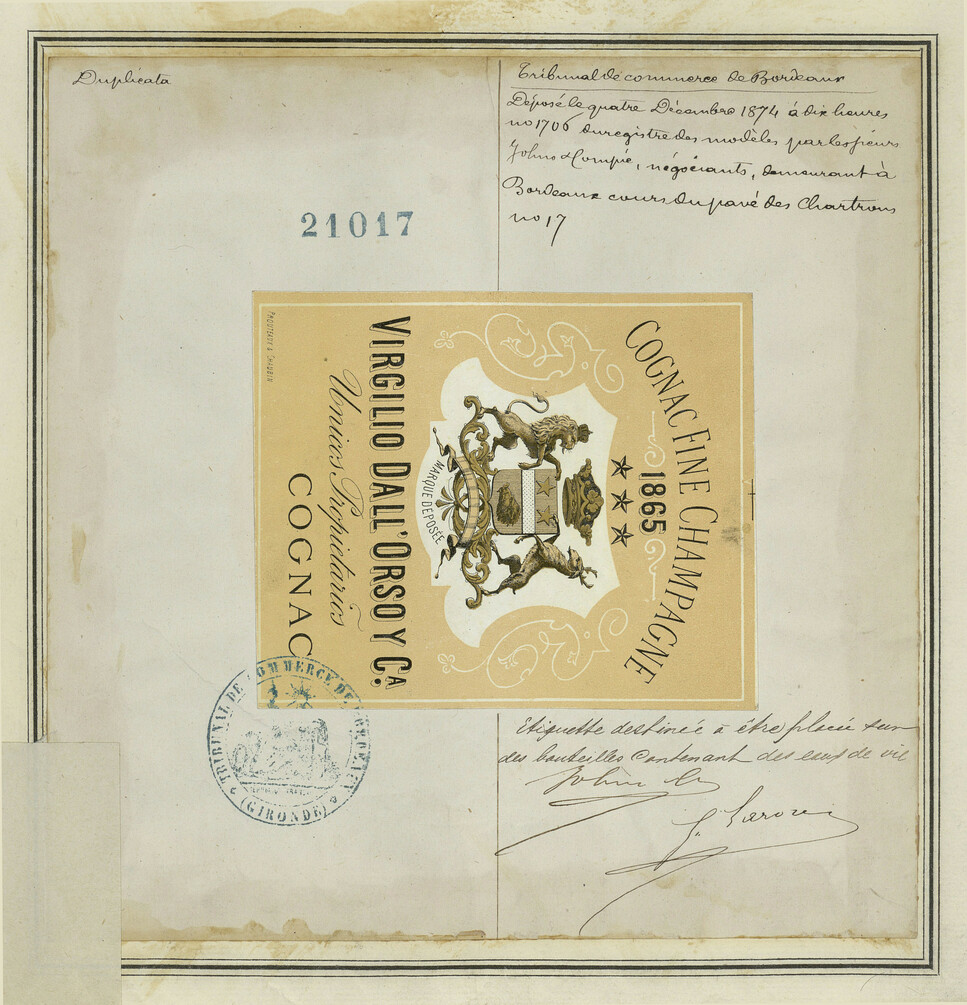 Duplicata
Tribunal de commerce de Bordeaux
Déposé le quatre Décembre 1874 à dix heures
no 1706 du registre des modèles par les sieurs
Johns & Compie, négociants, demeurant à
Bordeaux cours du pavé des Chartrons
no 17
21017
COGNAC FINE CHAMPAGNE
1865
MARQUE DEPOSÉE
VIRGILIO DALL'ORSO Y CA.
Unicos Proprietarios
COGNAC
TRIBUNAL DE COMMERCE DE BORDEAUX
(GIRONDE)
Etiquette destinée à être placée sur
des bouteilles contenant des eaux de vie